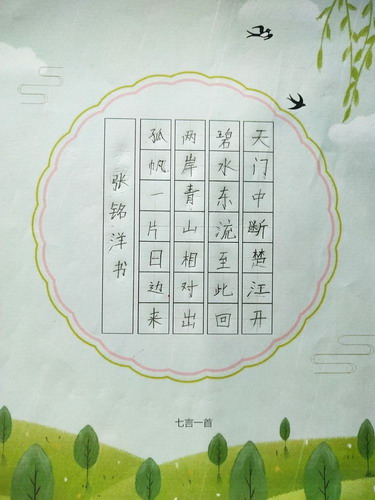 天门中断楚江开
碧水东流至此回
两岸青山相对出
孤帆一片日边来
张铭洋书
七言一首